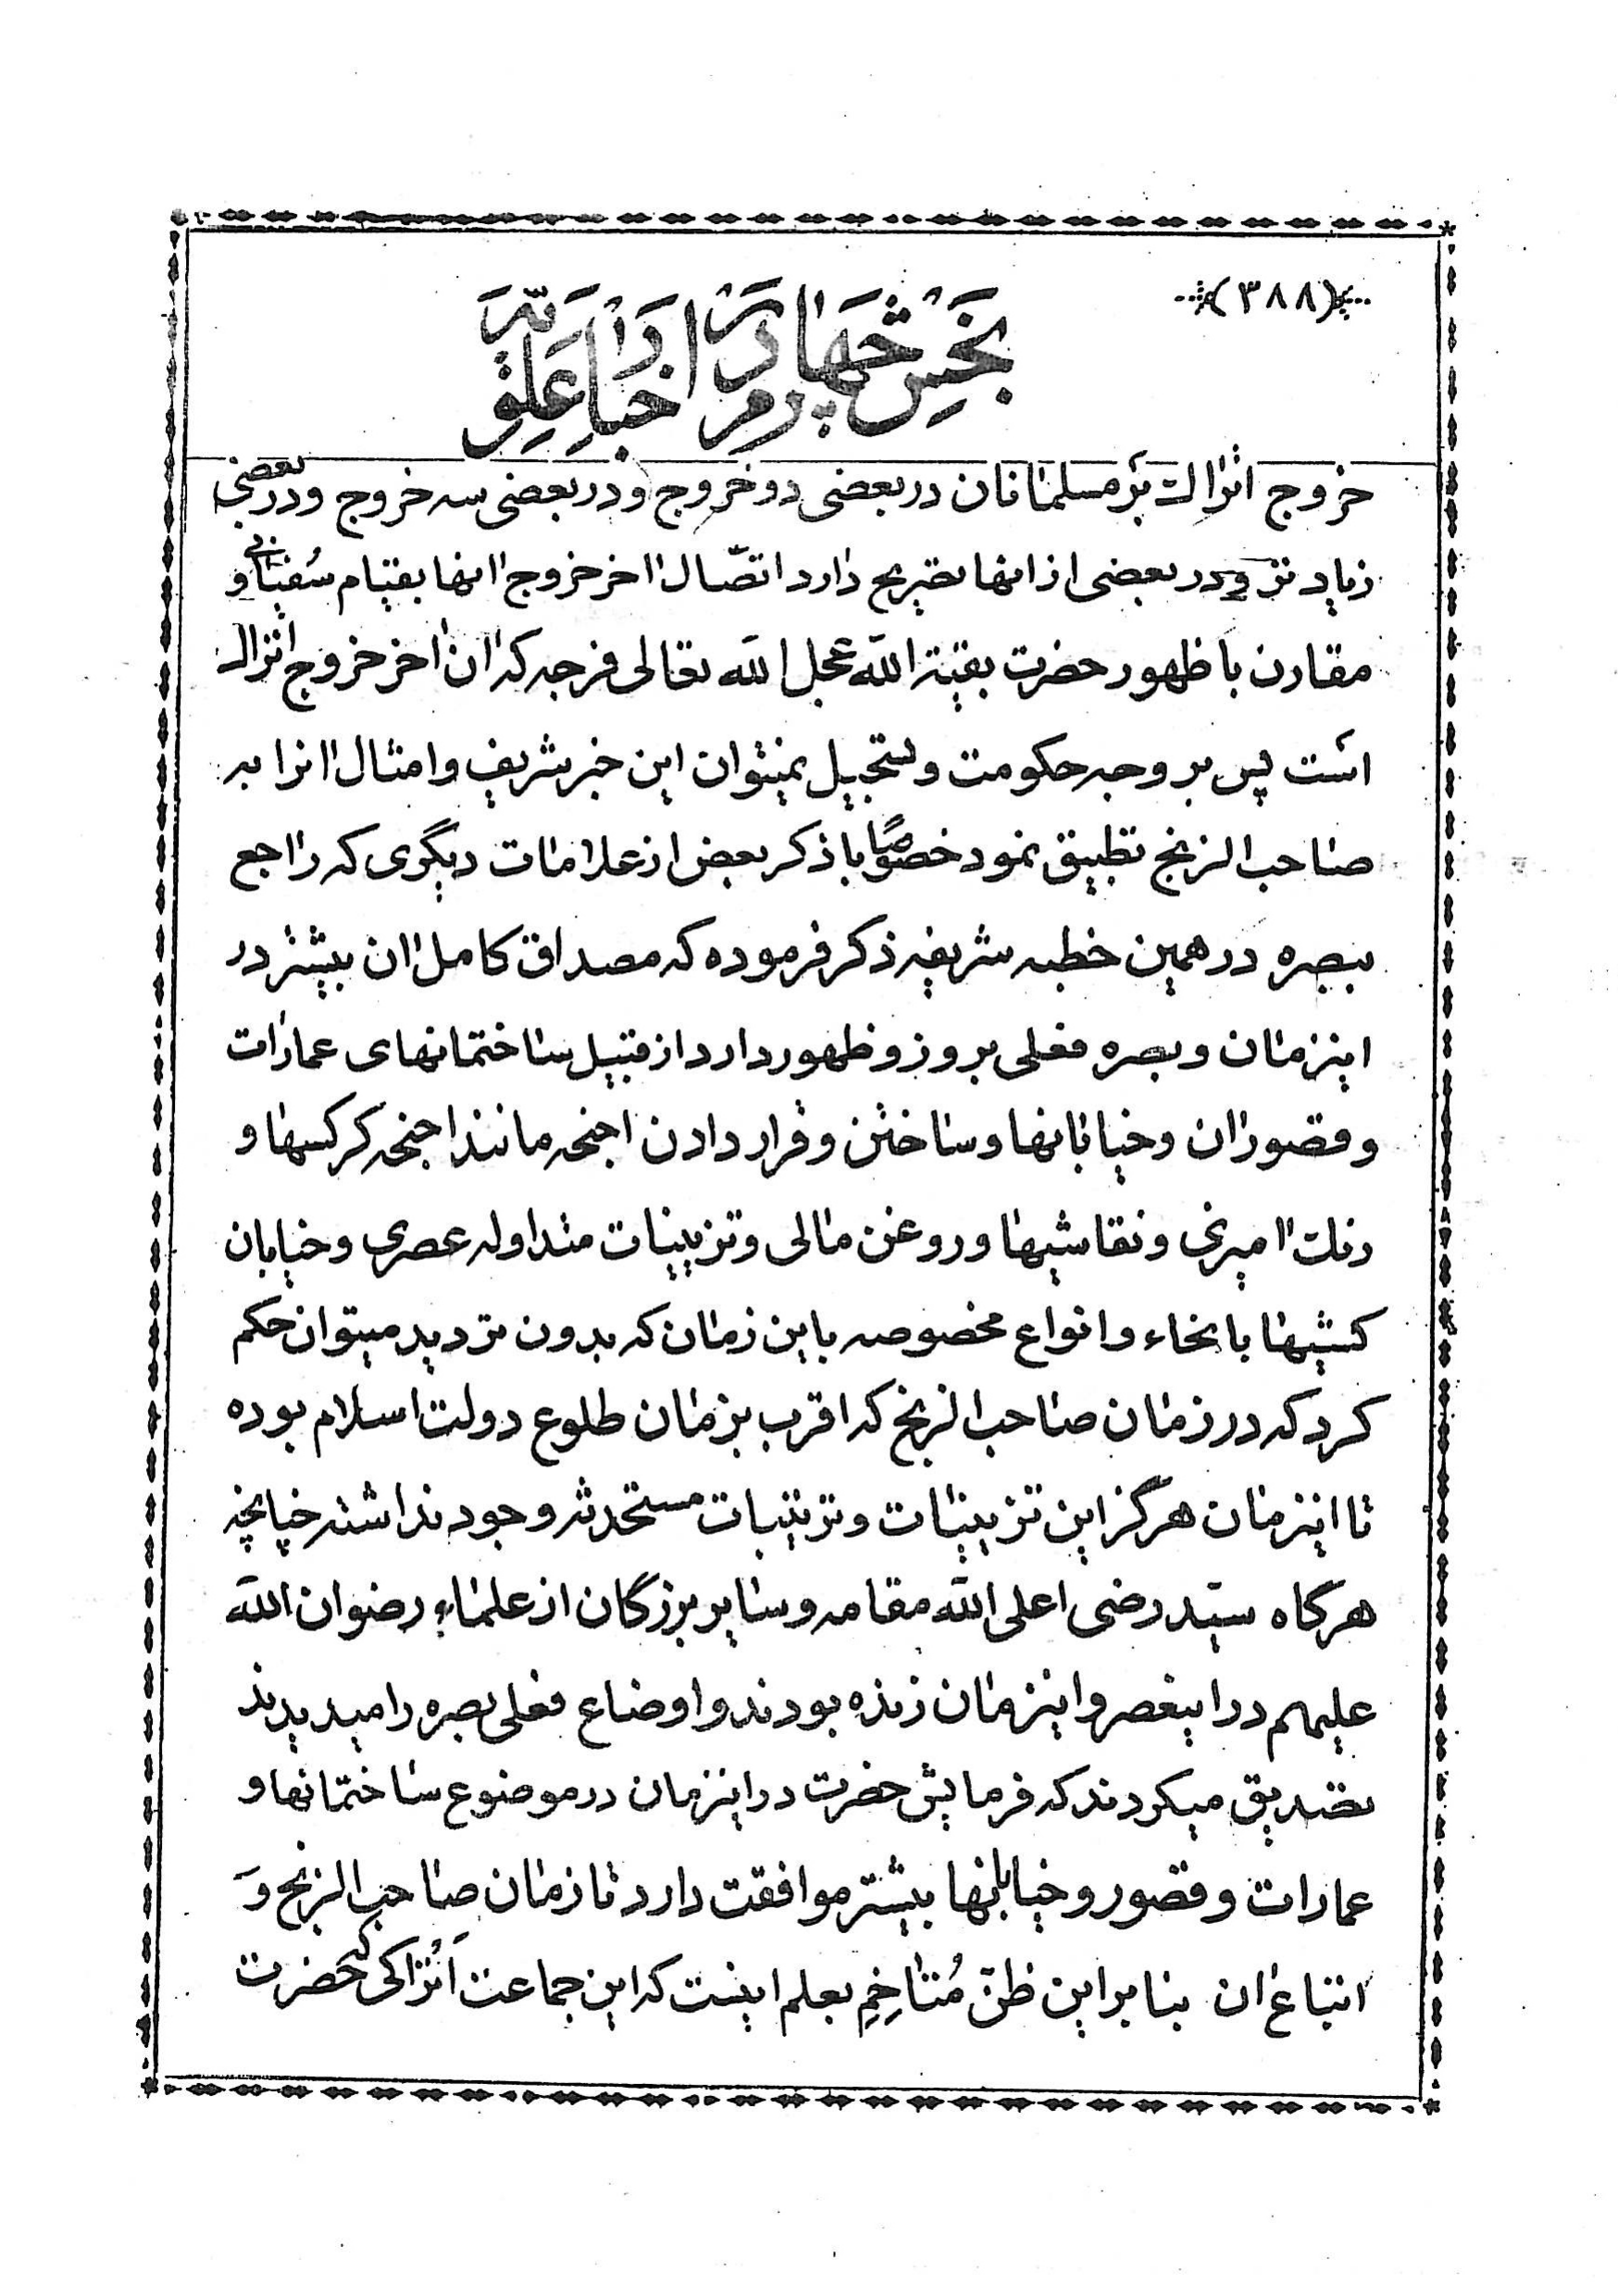 (٣٨٨)
بخش چهارم در اخبار علویه
خروج اتراک بر مسلمانان در بعضی دو خروج و در بعضی سه خروج و در بعضی
زیادتر و در بعضی از انها تصریح دارد اتصّال اخر خروج انها بقیام سُفیانی و
مقارن با ظهور حضرت بقیة الله عجل الله تعالی فرجه که ان اخر خروج اتراک
است پس بر وجه حکومت و تسجیل نمیتوان این خبر شریف و امثال انرا به
صاحب الزنج تطبیق نمود خصوصًا با ذکر بعض از علامات دیگری که راجع
ببصره در همین خطبه شریفه ذکر فرموده که مصداق کامل ان بیشتر در
اینزمان و بصره فعلی بروز و ظهور دارد از قبیل ساختمانهای عمارات
و قصور ان و خیابانها و ساختن و قرار دادن اجنحه مانند اجنحه کرکسها و
رنک امیزی و نقاشیها و روغن مالی و تزیینات متداوله عصری و خیابان
کشیها بانحاء و انواع مخصوصه باین زمان که بدون تردید میتوان حکم
کرد که در زمان صاحب الزنج که اقرب بزمان طلوع دولت اسلام بوده
تا اینزمان هرگز این تزیینات و ترتیبات مستحدثه وجود نداشته چنانچه
هرگاه سیّد رضی اعلی الله مقامه و سایر بزرگان از علماء رضوان الله
علیهم در اینعصر و اینزمان زنده بودند و اوضاع فعلی بصره را میدیدند
تصدیق میکردند که فرمایش حضرت در اینزمان در موضوع ساختمانها و
عمارات و قصور و خیابانها بیشتر موافقت دارد تا زمان صاحب الزنج و
اتباع ان بنا براین ظنّ مُتاخِمِ بعلم اینست که این جماعت اَتراکی که حضرت